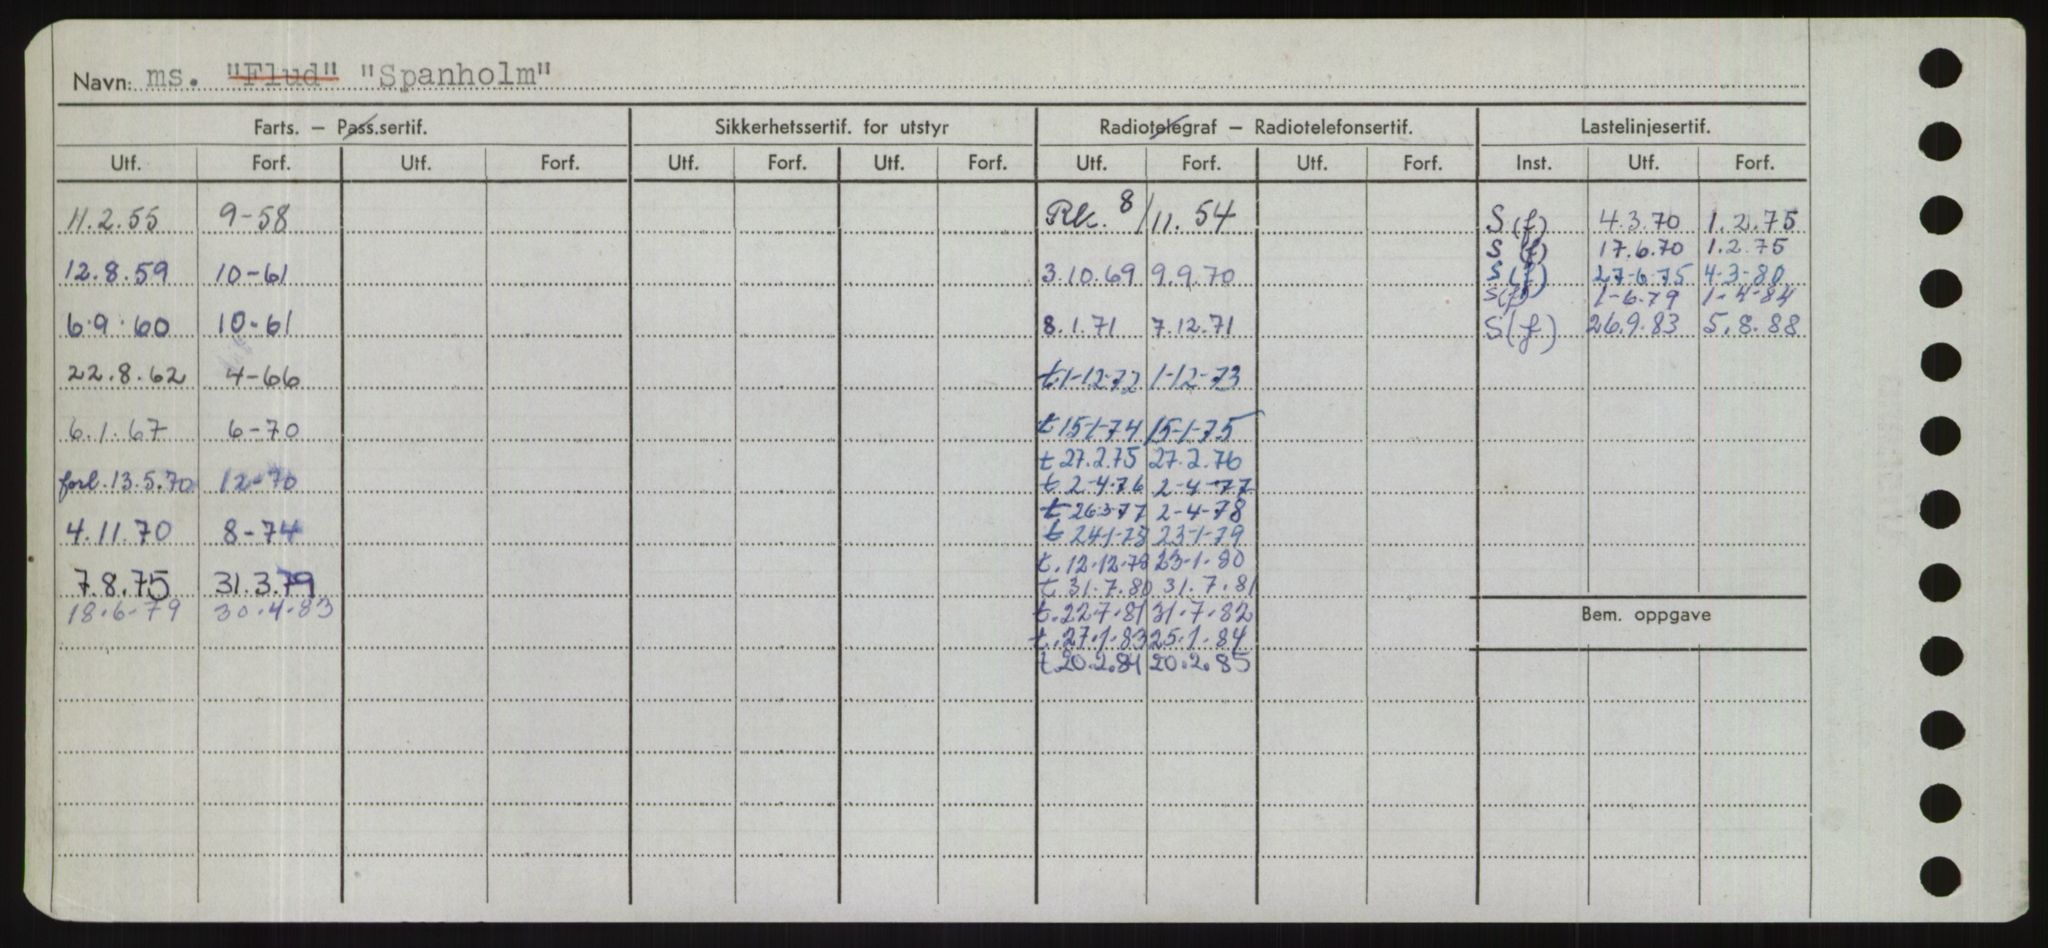 Navn: ms. "Flud" "Spanholm"
Farts. – Pass.sertif. Sikkerhetssertif. for utstyr Radiotelegraf – Radiotelefonsertif. Lastelinjesertif.
Utf. Forf. Utf. Forf. Utf. Forf. Utf. Forf. Utf. Forf. Utf. Forf. Inst. Utf. Forf.
11.2.55 9-58 Rk. 8/11. 54 S (f) 4.3.70 1.2.75
S (f) 17.6.70 1.2.75
12.8.59 10-61 3.10.69 9.9.70 S (f) 27-6-75 4-3-80
S(f) 1-6-79 1-4-84
6.9.60 10-61 8.1.71 7.12.71 S (f) 26.9.83 5.8.88
22.8.62 4-66 t 1-12-72 1-12-73
6.1.67 6-70 t 15-1-74 15-1-75
t 27.2.75 27.2.76
forl. 13.5.70 12-70 t 2-4-76 2-4-77
t 26-3-77 2-4-78
4.11.70 8-74 t 24-1-78 23-1-79
t. 12.12.79 23-1-80
7.8.75 31.3.79 t 31.7.80 31.7.81
18.6-79 30.4.83 t. 22.7.81 31.7.82
Bem. oppgave
t. 27.1.83 25.1.84
t 20.2.84 20.2.85